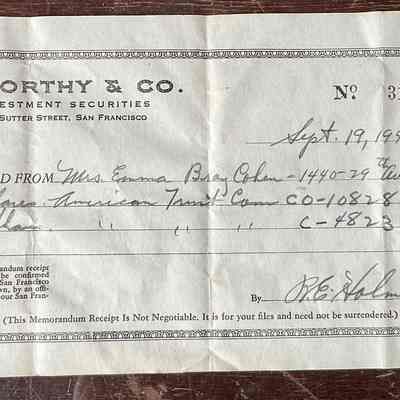 ORTHY & CO.
ESTMENT SECURITIES
SUTTER STREET, SAN FRANCISCO
Nº 31
Sept. 19, 19
D FROM Mrs. Emma Bray Cohen - 1440 - 29th Av
ares American Trust Com CO-10828
" " " C-4823
randum receipt
be confirmed
San Francisco
wn, by an offi-
our San Fran-
By R.E. Holm
(This Memorandum Receipt Is Not Negotiable. It is for your files and need not be surrendered.)